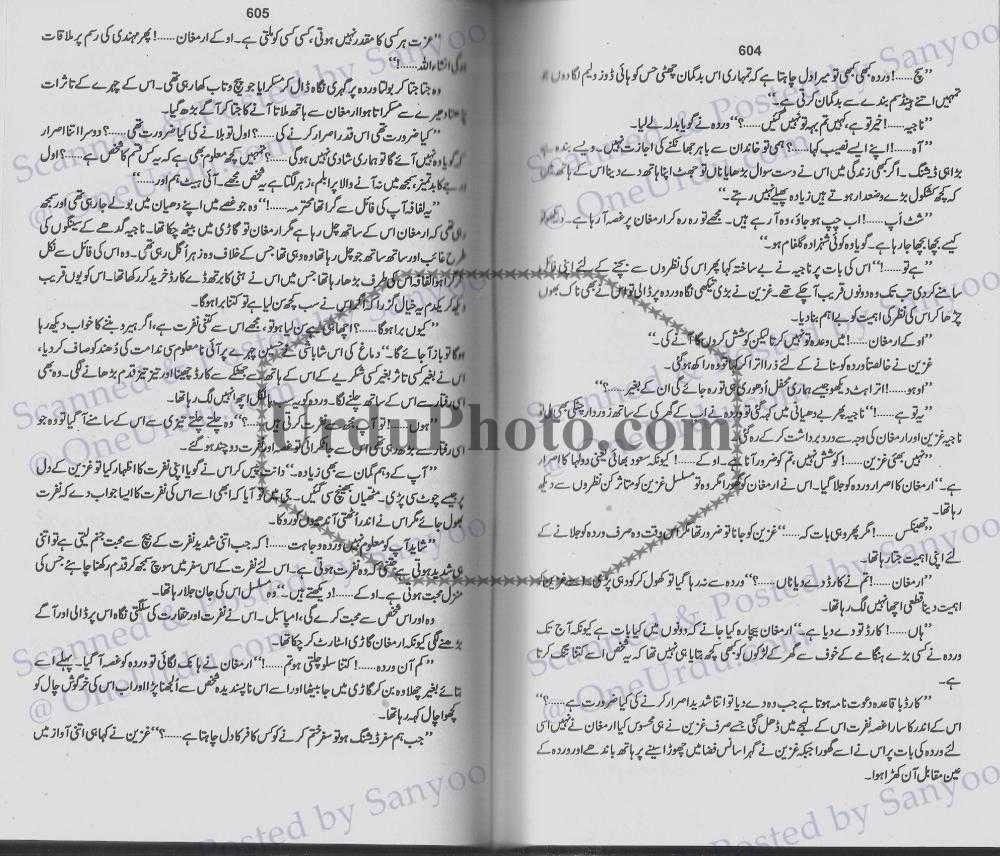 604
”سچ......! وردہ کبھی کبھی تو میرا دل چاہتا ہے کہ تمہاری اس بدگمان چھٹی حس کو ہائی ڈوز ویلیم لگا دوں جو
تمہیں اتنے ہینڈسم بندے سے بدگمان کرتی ہے۔“
”ناجیہ......! خیر تو ہے، کہیں تم بہہ تو نہیں گئیں......؟“ وردہ نے گویا بدلہ لے لیا۔
”آہ......! اپنے ایسے نصیب کہاں......؟ ہمیں تو خاندان سے باہر جھانکنے کی اجازت نہیں۔ ویسے بندہ ہے
بڑا ہی ڈیشنگ۔ اگر کبھی زندگی میں اس نے دست سوال بڑھایا ناں تو جھٹ اپنا ہاتھ دے دینا اس کے ہاتھ میں
کہ کچھ کشکول بڑے وضعدار ہوتے ہیں زیادہ پھیلے نہیں رہتے۔“
”شٹ اَپ......! اب چپ ہو جاؤ، وہ آ رہے ہیں۔ مجھے تو رہ رہ کر ارمغان پر غصہ آ رہا ہے۔
کیسے بچھا بچھا جا رہا ہے۔ گویا وہ کوئی شہزادہ گلفام ہو۔“
”ہے تو......!“ اس کی بات پر ناجیہ نے بے ساختہ کہا پھر اس کی نظروں سے بچنے کے لئے اپنی فائل
سامنے کر دی تب تک وہ دونوں قریب آ چکے تھے۔ غزین نے بڑی تیکھی نگاہ وردہ پر ڈالی تو اس نے بھی ناک بھوں
چڑھا کر اس کی نظر کی اہمیت کو بے اہم بنا دیا۔
”او کے ارمغان......! میں وعدہ تو نہیں کرتا لیکن کوشش کروں گا آنے کی۔“
غزین نے خالصتاً وردہ کو ستانے کے لئے ذرا اترا کر کہا تو وہ راکھ ہو گئی۔
”اوہو......! اتراہٹ دیکھو جیسے ہماری محفل اُدھوری ہی تو رہ جائے گی ان کے بغیر......؟“
”یہ تو ہے......!“ ناجیہ پھر بے دھیانی میں کہہ گئی تو وردہ نے اب کے گھر کی کے ساتھ زوردار چٹکی بھی لی
ناجیہ غزین اور ارمغان کی وجہ سے درد برداشت کر کے رہ گئی۔
”نہیں بھئی غزین......! کوشش نہیں، تم کو ضرور آنا ہے۔ او کے......! کیونکہ سعود بھائی یعنی دولہا کا اصرار
ہے۔“ ارمغان کا اصرار وردہ کو جلا گیا۔ اس نے ارمغان کو گھورا مگر وہ تو مسلسل غزین کو متاثر کن نظروں سے دیکھ
رہا تھا۔
”تھینکس......! مگر پھر وہی بات کہ......“ غزین کو جانا تو ضرور تھا مگر اس وقت وہ صرف وردہ کو جلانے کے
لئے اپنی اہمیت جتا رہا تھا۔
”ارمغان......! تم نے کارڈ دے دیا ناں......؟“ وردہ سے نہ رہا گیا تو کھول کر کہہ ہی پڑی۔ اسے غزین
اہمیت دینا قطعی اچھا نہیں لگ رہا تھا۔
”ہاں......! کارڈ تو دے دیا ہے۔“ ارمغان بیچارہ کیا جانے کہ دونوں میں کیا بات ہے کیونکہ آج تک
وردہ نے کسی بڑے ہنگامے کے خوف سے گھر کے لڑکوں کو بھی کچھ بتایا ہی نہیں تھا کہ یہ شخص اسے کتنا تنگ کرتا
ہے۔
”کارڈ باقاعدہ دعوت نامہ ہوتا ہے جب وہ دے دیا تو اتنا شدید اصرار کرنے کی کیا ضرورت ہے......؟“
اس کے اندر کا سارا غصہ نفرت اس کے لہجے میں ڈھل گئی جسے صرف غزین نے ہی محسوس کیا ارمغان نے نہیں اسی
لئے وردہ کی بات پر اس نے اسے گھورا جبکہ غزین نے گہرا سانس فضا میں چھوڑا سینے پر ہاتھ باندھے اور وردہ کے
عین مقابل آن کھڑا ہوا۔
605
”عزت ہر کسی کا مقدر نہیں ہوتی، کسی کسی کو ملتی ہے۔ او کے ارمغان......! پھر مہندی کی رسم پر ملاقات
ہو گی انشاء اللہ......!“
وہ جتا جتا کر بولتا وردہ پر گہری نگاہ ڈال کر مسکرایا جو پیچ و تاب کھا رہی تھی۔ اس کے چہرے کے تاثرات
دھیرے سے مسکراتا ہوا ارمغان سے ہاتھ ملاتا آنے کا جتا کر آگے بڑھ گیا۔
”کیا ضرورت تھی اس قدر اصرار کرنے کی......؟ اول تو بلانے کی کیا ضرورت تھی......؟ دوسرا اتنا اصرار
کہ گویا وہ نہیں آئے گا تو ہماری شادی نہیں ہو گی......؟ تمہیں کچھ معلوم بھی ہے کہ یہ کس قسم کا شخص ہے......؟ اول
درجے کا بدتمیز، سمجھ میں نہ آنے والا پرابلم، زہر لگتا ہے یہ شخص مجھے۔ آئی ہیٹ ہم اور......“
”یہ لفافہ آپ کی فائل سے گرا تھا محترمہ......!“ وہ جو غصے میں اپنے دھیان میں بولے جا رہی تھی اور سمجھ
رہی تھی کہ ارمغان اس کے ساتھ چل رہا ہے مگر ارمغان تو گاڑی میں بیٹھ چکا تھا۔ ناجیہ گدھے کے سینگوں کی
طرح غائب اور ساتھ ساتھ جو چل رہا تھا وہ وہی تھا جس کے خلاف وہ زہر اُگل رہی تھی۔ وہ اس کی فائل سے نکل
کر گرا ہوا لفافہ اس کی طرف بڑھا رہا تھا، جس میں اس نے ہنی کا برتھ ڈے کارڈ خرید کر رکھا تھا۔ اس کو یوں قریب
دیکھ کر یکدم یہ خیال گزرا کہ اگر اس نے سب کچھ سن لیا ہے تو کتنا برا ہو گا۔
”کیوں برا ہو گا......؟ اچھا ہے اس نے سن لیا ہو تو، مجھے اس سے کتنی نفرت ہے، اگر ہیرو بننے کا خواب دیکھ رہا
ہو گا تو باز آ جائے گا۔“ دماغ کی اس شاباشی نے حسین چہرے پر آئی نامعلوم سی ندامت کی دُھند کو صاف کر دیا،
اس نے بغیر کسی تاثر بغیر کسی شکریے کے اس کے ہاتھ سے جھٹکے سے کارڈ چھینا اور تیز تیز قدم بڑھانے لگی۔ وہ بھی
اسی رفتار سے اس کے ساتھ چلنے لگا۔ وردہ کو یہ سب بالکل اچھا نہیں لگ رہا تھا۔
”ہوں......! تو آپ مجھ سے نفرت کرتی ہیں......؟“ وہ چلتے چلتے تیزی سے اس کے سامنے آ گیا تو وہ جو
اسی رفتار سے بڑھ رہی تھی اس سے جا ٹکرائی تو غصہ اور نفرت دو چند ہو گئے۔
”آپ کے وہم گمان سے بھی زیادہ۔“ دانت پیس کر اس نے گویا اپنی نفرت کا اظہار کیا تو غزین کے دل
پر جیسے چوٹ سی پڑی۔ مٹھیاں بھینچ سی گئیں۔ جی میں تو آیا کہ ابھی اسے اس کی نفرت کا ایسا جواب دے کہ نفرت
بھول جائے مگر اس نے اندر اُٹھتی آندھیوں کو روکا۔
”شاید آپ کو معلوم نہیں وردہ وجاہت......! کہ جب اتنی شدید نفرت کے بیچ سے محبت جنم لیتی ہے تو اتنی
ہی شدید ہوتی ہے جتنی کہ وہ نفرت ہوتی ہے۔ اس لئے نفرت کے اس سفر میں سوچ سمجھ کر قدم رکھنا چاہئے جس کی
منزل محبت ہوتی ہے۔ او کے......! دیکھتے ہیں۔“ وہ مسلسل اس کی جان جلا رہا تھا۔
وہ اور اس شخص سے محبت کرے گی، امپاسبل۔ اس نے نفرت اور حقارت کی سلگتی نگاہ اس پر ڈالی اور آگے
بڑھنے لگی کیونکہ ارمغان گاڑی اسٹارٹ کر چکا تھا۔
”کم آن وردہ......! کتنا سلو چلتی ہو تم......!“ ارمغان نے ہانک لگائی تو وردہ کو غصہ آ گیا۔ پہلے اسے
بتائے بغیر چھلاوہ بن کر گاڑی میں جا بیٹھا اور اسے اس ناپسندیدہ شخص سے اُلجھنا پڑا اور اب اس کی خرگوش چال کو
کچھوا چال کہہ رہا تھا۔
”جب ہم سفر ڈیشنگ ہو تو سفر ختم کرنے کو کس کافر کا دل چاہتا ہے......؟“ غزین نے کہا ہی اتنی آواز میں
UrduPhoto.com
Scanned & Posted by Sanyoo
@ OneUrdu.com